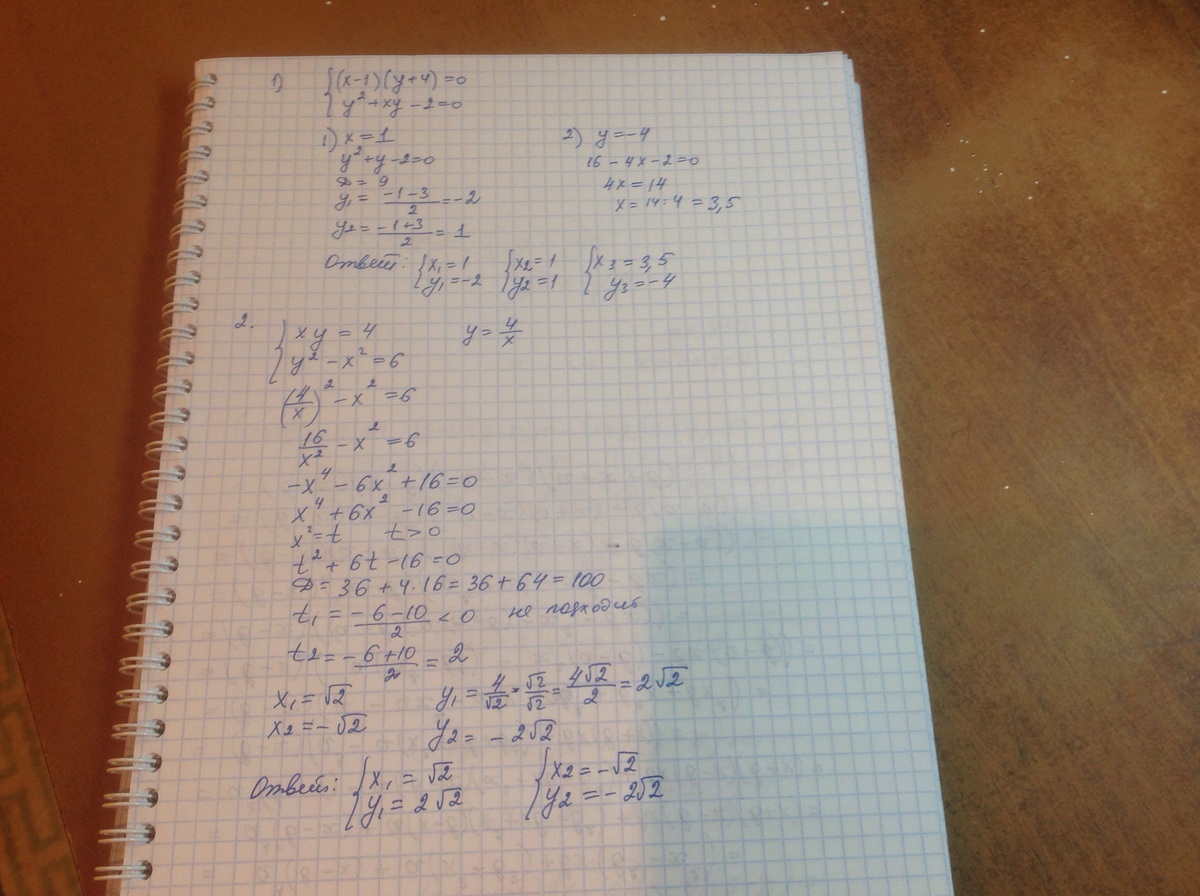 1) {(x-1)(y+4)=0
y²+xy-2=0
1) x=1
y²+y-2=0
D=9
y₁= (-1-3)/2=-2
y₂= (-1+3)/2=1
2) y=-4
16-4x-2=0
4x=14
x=14:4=3,5
Ответ: {x₁=1 {x₂=1 {x₃=3,5
y₁=-2 y₂=1 y₃=-4
2. {xy=4 y=4/x
y²-x²=6
(4/x)²-x²=6
16/x²-x²=6
-x⁴-6x²+16=0
x⁴+6x²-16=0
x²=t t>0
t²+6t-16=0
D=36+4·16=36+64=100
t₁=(-6-10)/2<0 не подходит
t₂=(-6+10)/2=2
x₁=√2 y₁=4/√2·√2/√2=4√2/2=2√2
x₂=-√2 y₂=-2√2
Ответ: {x₁=√2 {x₂=-√2
y₁=2√2 y₂=-2√2